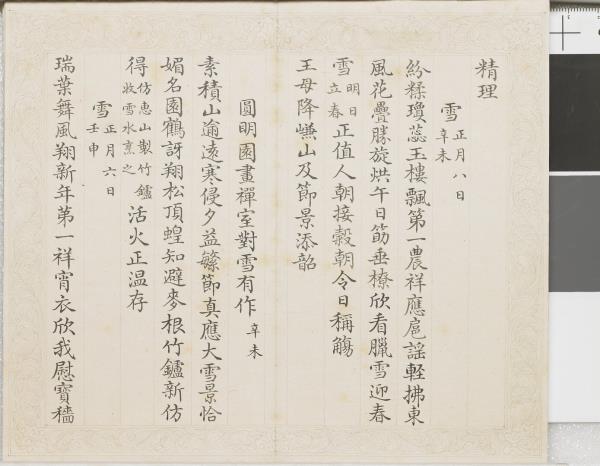 精理
雪正月八日辛未
紛糅瓊蕊玉樓飄第一農祥應扈謠輕拂東
風花疊勝旋烘午日筯垂橑欣看臘雪迎春
雪明日立春正值人朝接穀朝今日稱觴
王母降嵰山及節景添韶
圓明園畫禪室對雪有作辛未
素積山逾遠寒侵夕益繁節真應大雪景恰
媚名園鶴訝翔松頂蝗知避麥根竹鑪新仿
得仿惠山製竹鑪收雪水烹之活火正温存
雪正月六日壬申
瑞葉舞風翔新年第一祥宵衣欣我慰寶穡